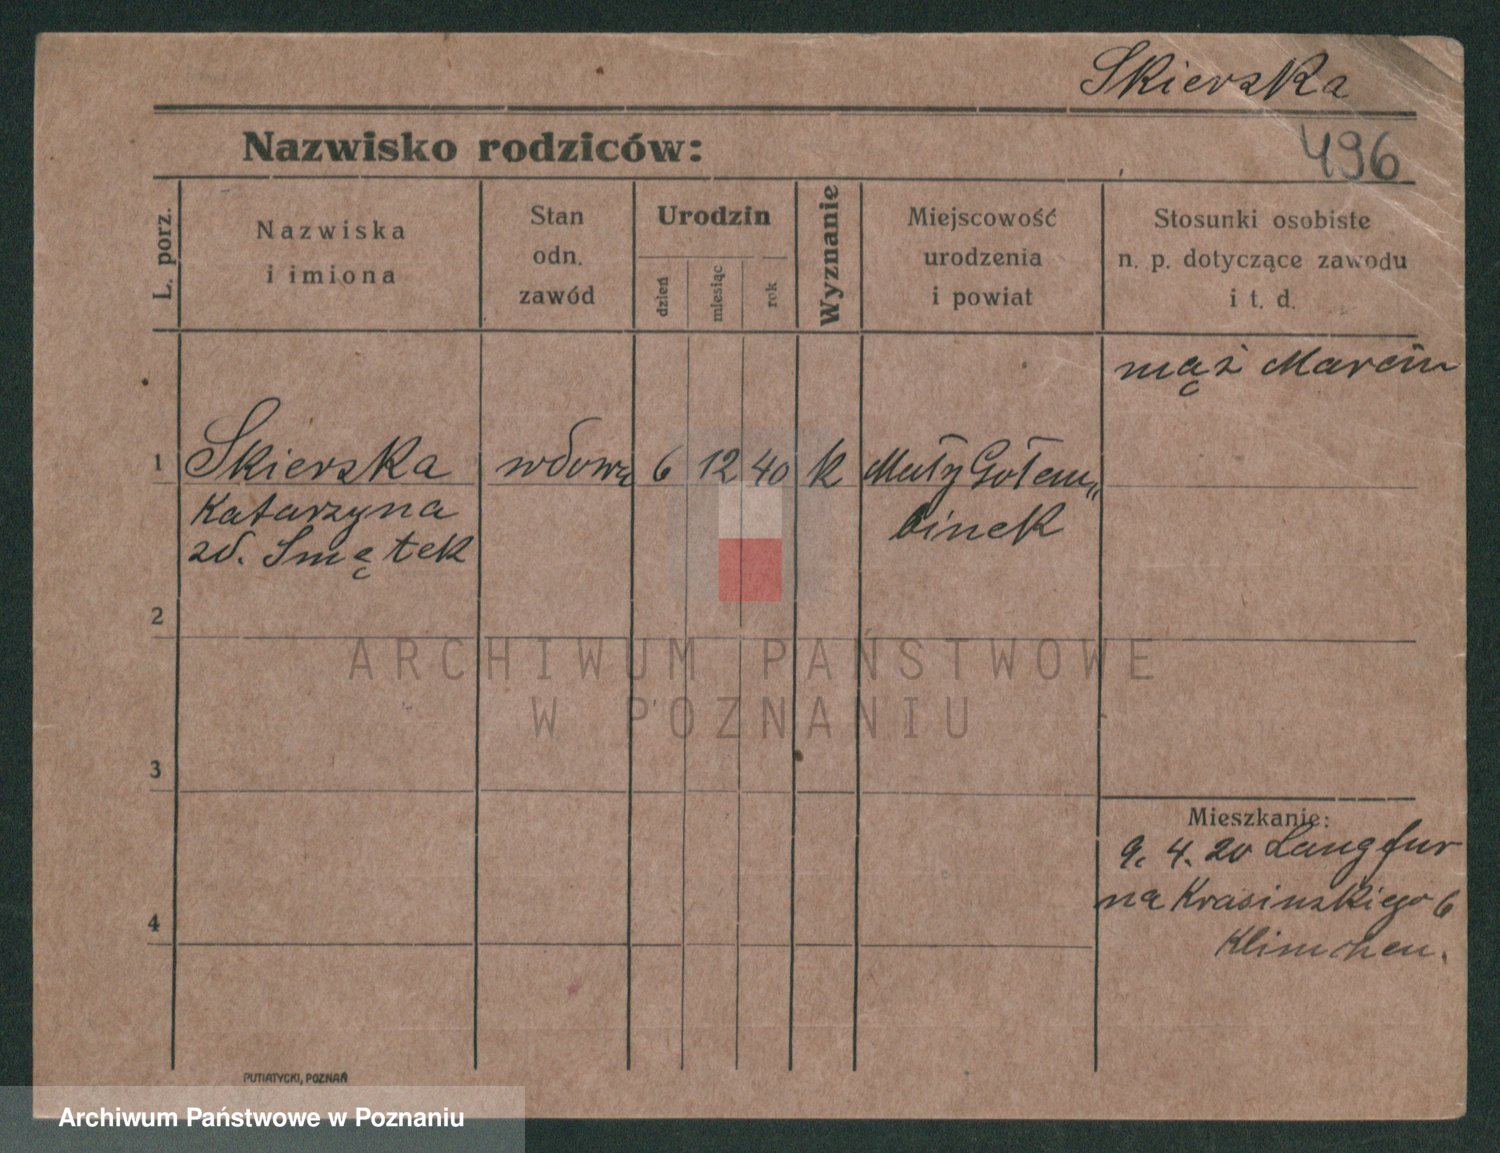 Skierska
Nazwisko rodziców:
496
L. porz.
Nazwiska
i imiona
Stan
odn.
zawód
Urodzin
dzień
miesiąc
rok
Wyznanie
Miejscowość
urodzenia
i powiat
Stosunki osobiste
n. p. dotyczące zawodu
i t. d.
mąż Marcin
1 Skierska wdowa 6 12 40 k Mały Gołem„
Katarzyna binek
zd. Smętek
2
ARCHIWUM PAŃSTWOWE
W POZNANIU
3
Mieszkanie:
9. 4. 20 Langfur
na Krasinskiego 6
4
PUTIATYCKI, POZNAŃ
Archiwum Państwowe w Poznaniu